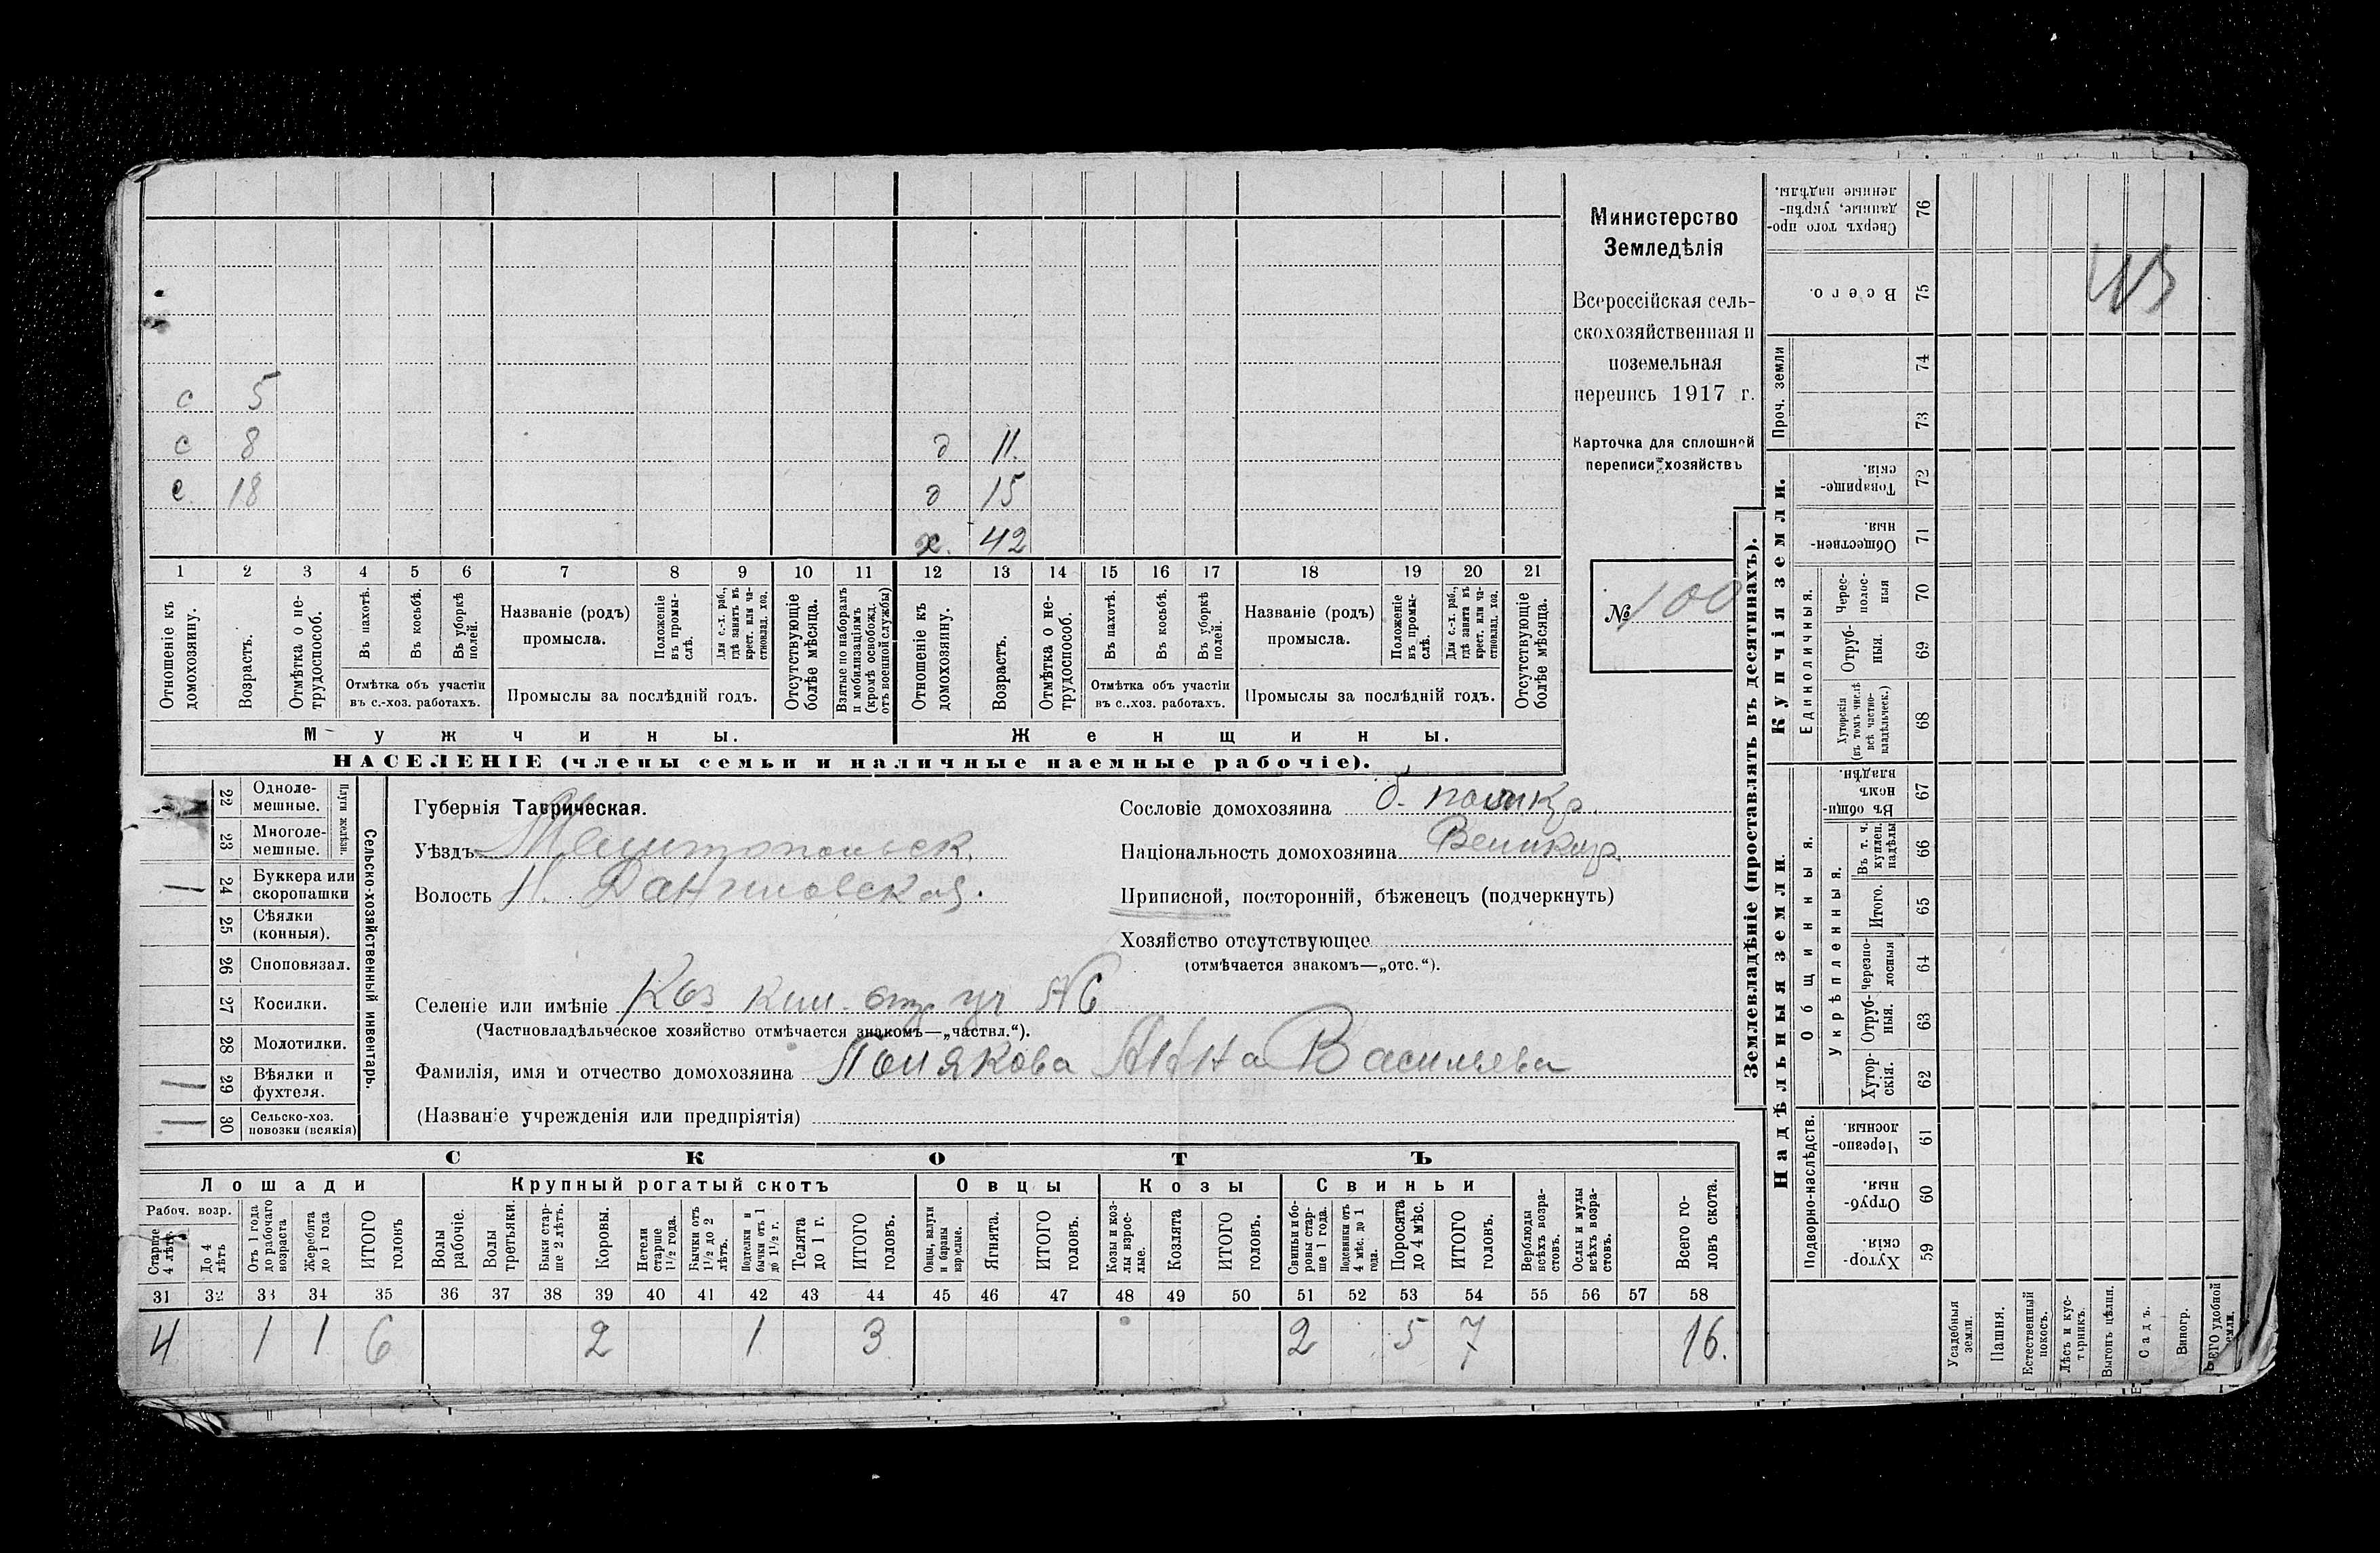 с 5
с 8 д 11.
с 18 д 15
х. 42
1 2 3 4 5 6 7 8 9 10 11 12 13 14 15 16 17 18 19 20 21
Отношеніе къ домохозяину.
Возрастъ.
Отмѣтка о не-трудоспособ.
Въ пахотѣ.
Въ косьбѣ.
Въ уборкѣ полей.
Отмѣтка объ участіи въ с.-хоз. работахъ.
Названіе (родъ) промысла.
Положеніе въ промы-слѣ.
Для с.-х. раб., гдѣ занятъ въ крест. или ча-стновлад. хоз.
Промыслы за послѣдній годъ.
Отсутствующіе болѣе мѣсяца.
Взятые по наборамъ и мобилизаціямъ (кромѣ освобожд. отъ военной службы)
Отношеніе къ домохозяину.
Возрастъ.
Отмѣтка о не-трудоспособ.
Въ пахотѣ.
Въ косьбѣ.
Въ уборкѣ полей.
Отмѣтка объ участіи въ с..хоз. работахъ.
Названіе (родъ) промысла.
Положеніе въ промы-слѣ.
Для с.-х. раб., гдѣ занята въ крест. или ча-стновлад. хоз.
Промыслы за послѣдній годъ.
Отсутствующіе болѣе мѣсяца.
Мужчины. Женщины.
НАСЕЛЕНІЕ (члены семьи и наличные наемные рабочіе).
Министерство
Земледѣлія
Всероссійская сель-
скохозяйственная и
поземельная
перепись 1917 г.
Карточка для сплошной
переписи хозяйствъ
№ 100
22 Одноле-мешные.
23 Многоле-мешные.
Плуги желѣзн.
24 Буккера или скоропашки
25 Сѣялки (конныя).
26 Сноповязал.
27 Косилки.
28 Молотилки.
29 Вѣялки и фухтеля.
30 Сельско-хоз. повозки (всякія)
Сельско-хозяйственный инвентарь.
Губернія Таврическая.
Уѣздъ Мелитопольск.
Волость Н. Даниловская.
Сословіе домохозяина
Національность домохозяина Великор.
Приписной, посторонній, бѣженецъ (подчеркнуть)
Хозяйство отсутствующее
(отмѣчается знакомъ—„отс.“).
Селеніе или имѣніе
(Частновладѣльческое хозяйство отмѣчается знакомъ—„частвл.“).
Фамилія, имя и отчество домохозяина Полякова Анна Васильева
(Названіе учрежденія или предпріятія)
СКОТЪ
Лошади Крупный рогатый скотъ Овцы Козы Свиньи
Рабоч. возр.
Старше 4 лѣтъ
До 4 лѣтъ
Отъ 1 года до рабочаго возраста
Жеребята до 1 года
ИТОГО головъ
Волы рабочіе.
Волы третьяки.
Быки стар-ше 2 лѣтъ.
Коровы.
Нетели старше 1½ года.
Бычки отъ 1½ до 2 лѣтъ.
Подтелки и бычки отъ 1 до 1½ г.
Телята до 1 г.
ИТОГО головъ.
Овцы, валухи и бараны взрослые.
Ягнята.
ИТОГО головъ.
Козы и коз-лы взрос-лые.
Козлята
ИТОГО головъ.
Свиньи и бо-ровы стар-ше 1 года.
Подсвинки отъ 4 мѣс. до 1 года.
Поросята до 4 мѣс.
ИТОГО головъ.
Верблюды всѣхъ возра-стовъ.
Ослы и мулы всѣхъ возра-стовъ.
Всего го-ловъ скота.
31 32 33 34 35 36 37 38 39 40 41 42 43 44 45 46 47 48 49 50 51 52 53 54 55 56 57 58
4 1 1 6 2 1 3 2 5 7 16.
Землевладѣніе (проставлять въ десятинахъ).
Купчія земли.
Надѣльныя земли.
Сверхъ того про-данные, укрѣп-ленные надѣлы. 76
Всего. 75
Проч. земли
74
73
Товарище-скія. 72
Обществен-ныя. 71
Единоличныя.
Черес-полос-ныя 70
Отруб-ныя. 69
Хуторскія (въ томъ числѣ всѣ частно-владѣльческ.) 68
Общинныя.
Въ общин-номъ владѣн. 67
Укрѣпленныя.
Въ т. ч. куплен. надѣлы 66
Итого. 65
черезпо-лосныя 64
Отруб-ныя. 63
Хутор-скія. 62
Подворно-наслѣдств.
Черезпо-лосныя. 61
Отруб-ныя. 60
Хутор-скія. 59
Усадебныя земли.
Пашня.
Естественный покосъ.
Лѣсъ и кус-тарникъ.
Выгонъ цѣлин.
Садъ.
Виногр.